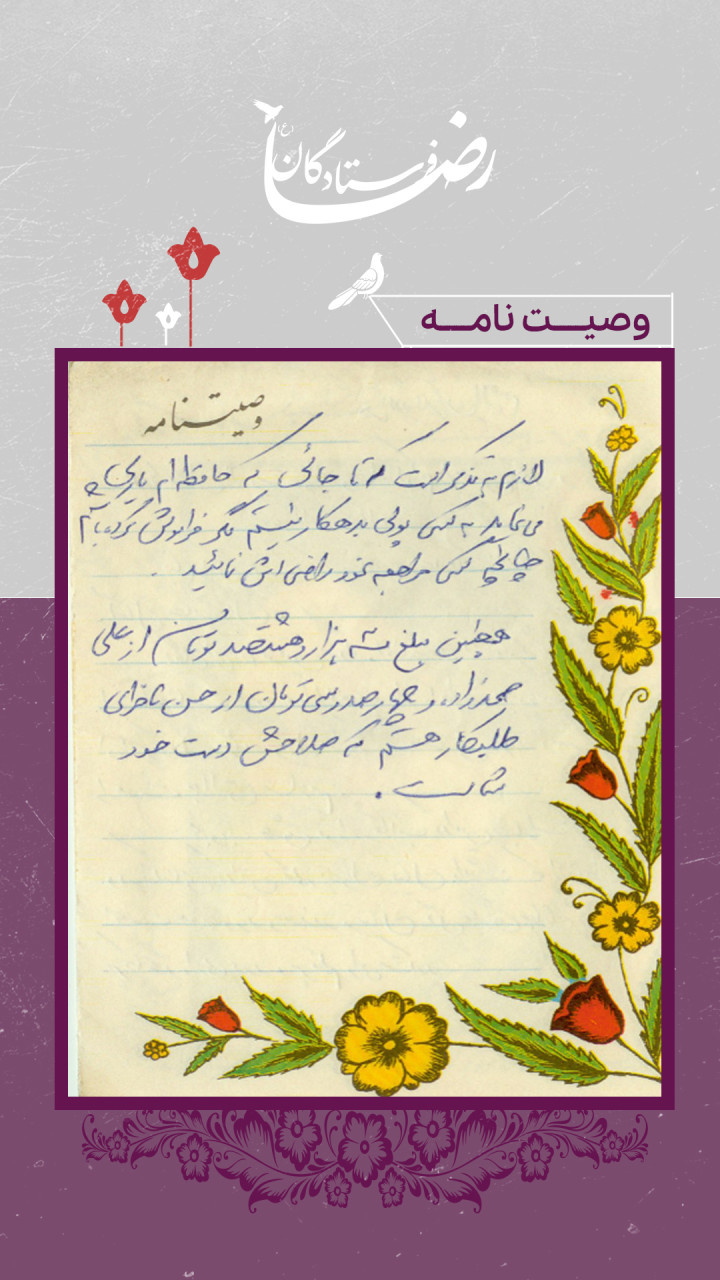 فرستادگان رضا (ع)
وصیت نامه
وصیتنامه
لازم به تذکر است که تا جائی که حافظه ام یاری
می نماید به کسی پولی بدهکار نیستم مگر فراموش کرده باشم
چنانچه کسی مراجعه نمود راضی اش نمائید.
همچنین مبلغ سه هزار و هشتصد تومان از علی
صمدزاده و چهارصد و سی تومان از حسن
طلبکار هستم که صلاحش دست خود
شماست.